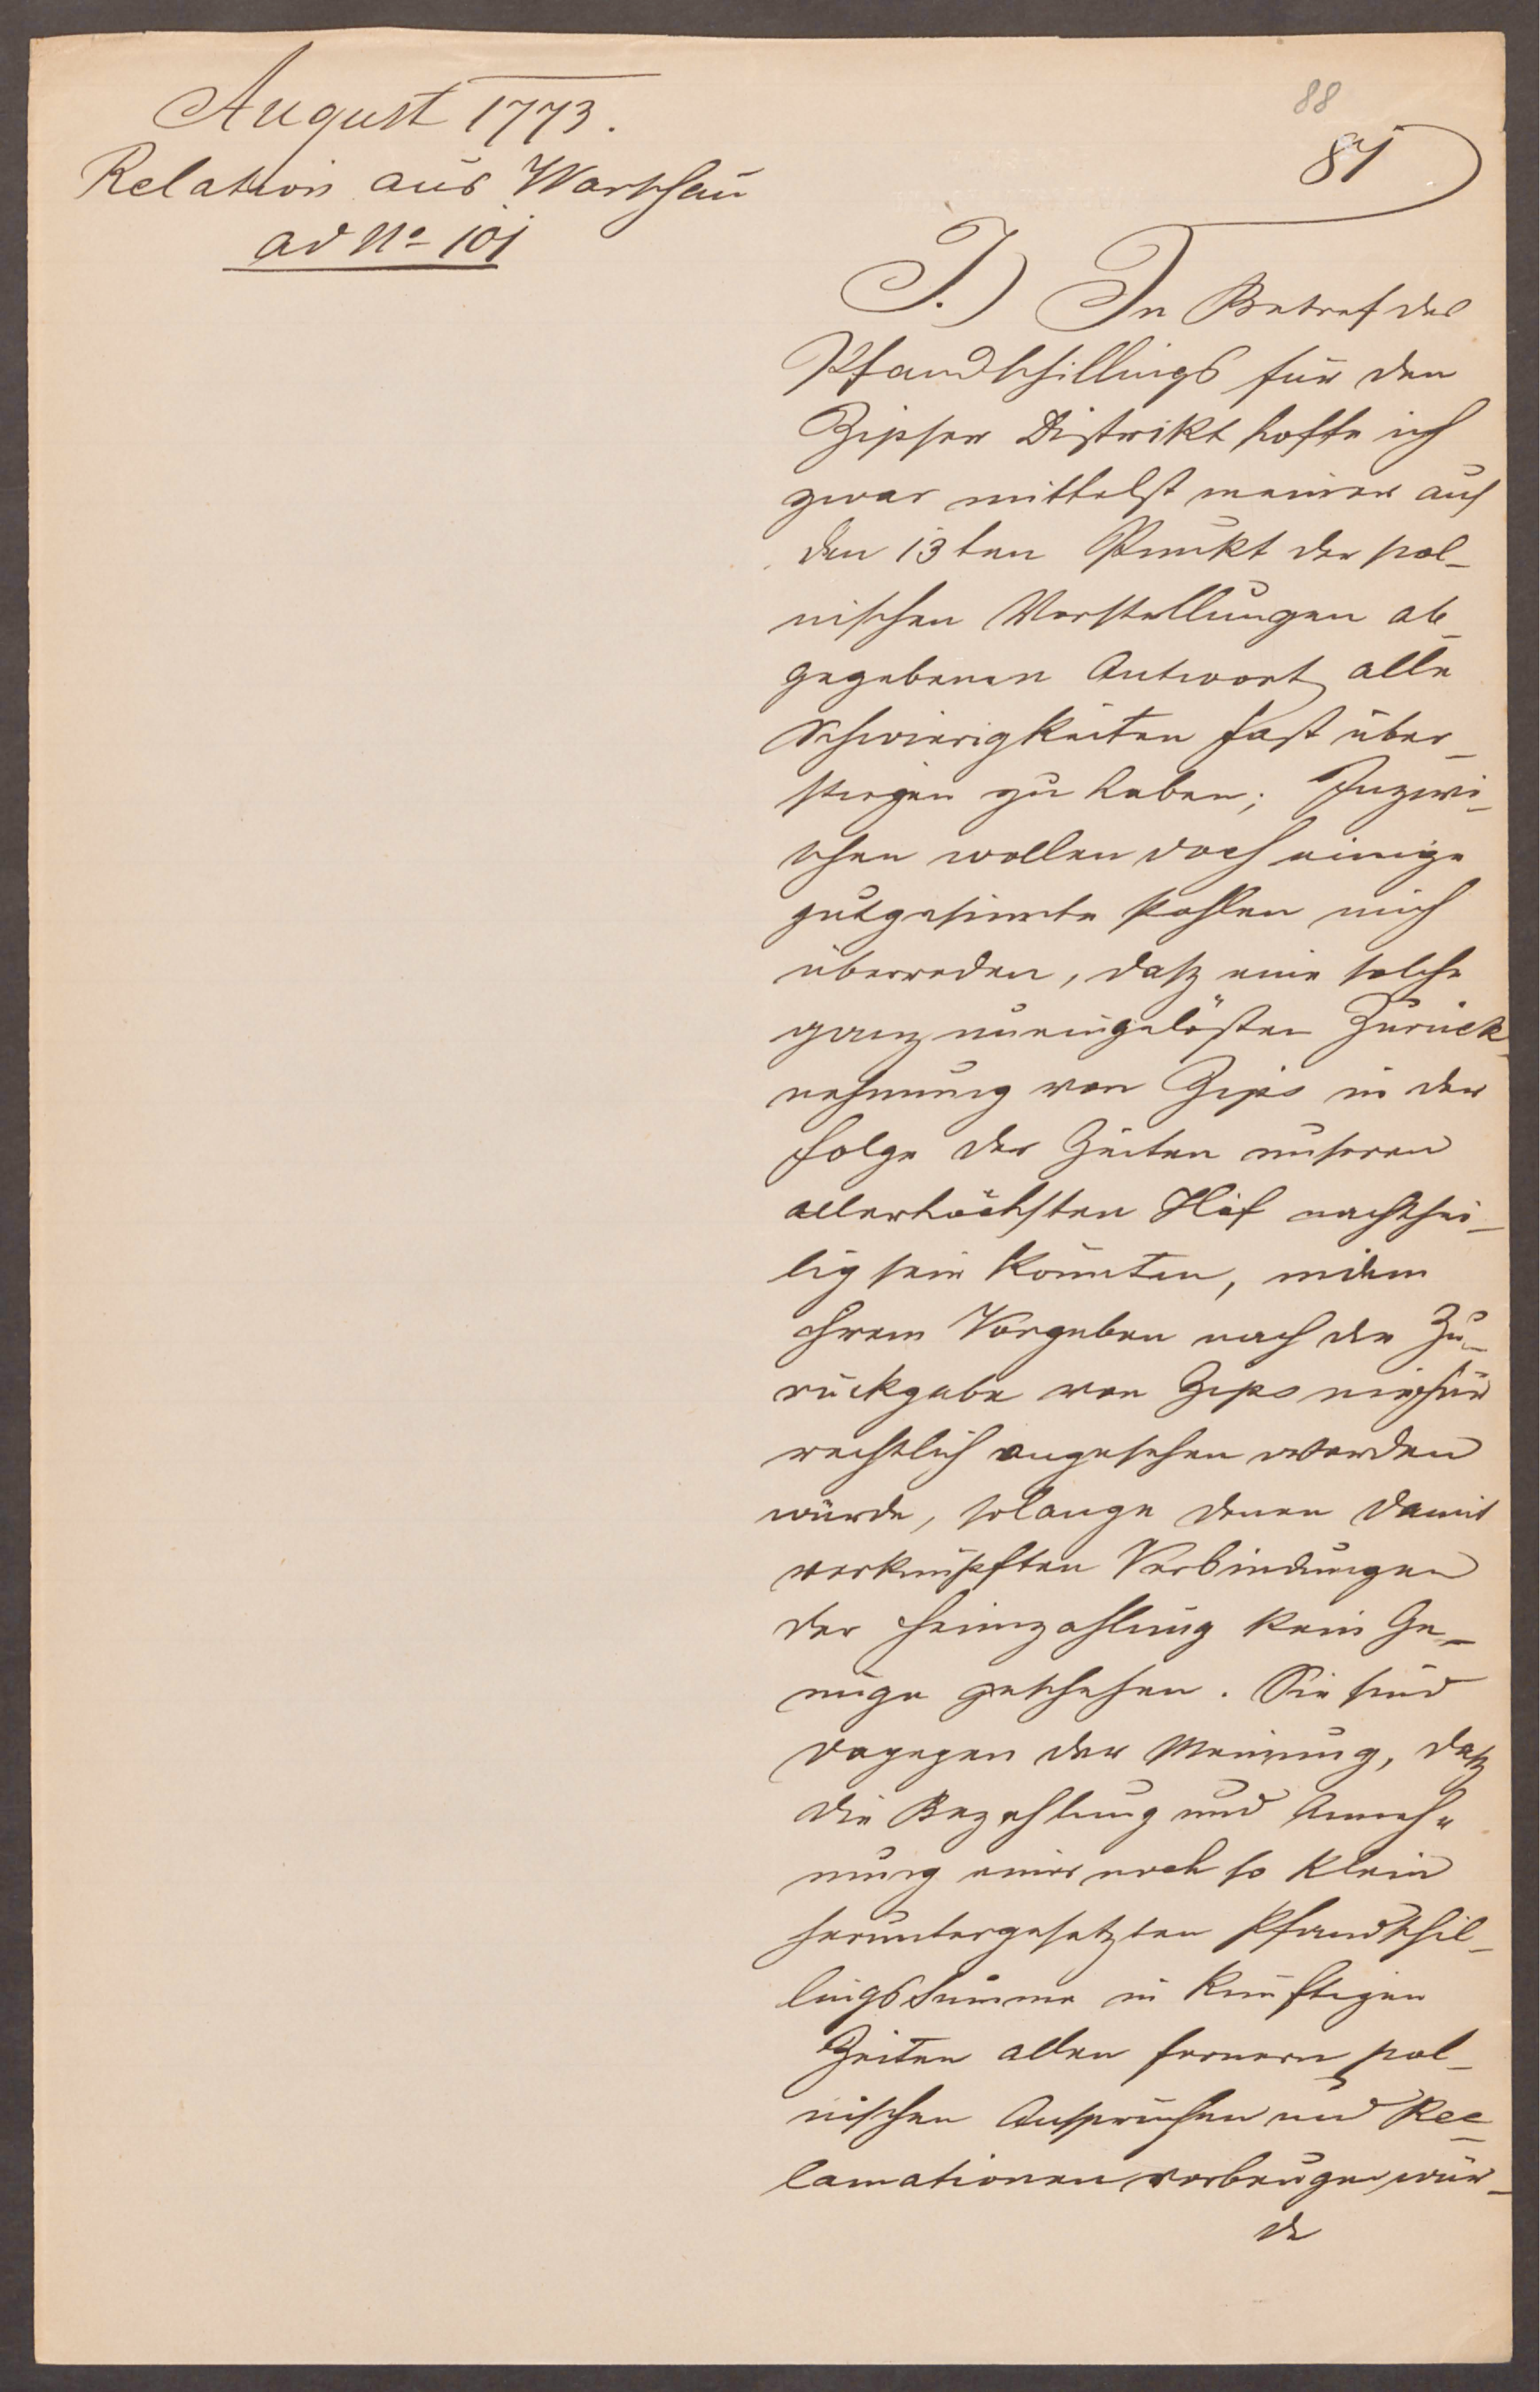 August 1773.
Relation aus Warschau
ad No 101
88
81
I.) In Betref des
Pfandschillings für den
Zipser Distrikt hoffe ich
zwar mittelst meiner auf
den 13ten Punkt der pol-
nischen Vorstellungen ab-
gegebenen Antwort alle
Schwierigkeiten fast über-
stiegen zu haben; Inzwi-
schen wollen doch einige
gutgesinnte Pohlen mich
überreden, daß eine solche
ganz uneingelösten Zurück-
nehmung von Zips in der
Folge der Zeiten unseren
allerhöchsten Hof nachthei-
lig sein könnten, indem
ihrem Vorgeben nach die Zu-
rückgabe von Zips nie für
rechtlich angesehen werden
würde, solange denen damit
verknüpften Verbindungen
der Heimzahlung kein Ge-
nüge geschehen. Sie sind
dagegen der Meinung, daß
die Bezahlung und Anneh-
mung einer noch so klein
heruntergesetzten Pfandschil-
lingssumme in künftigen
Zeiten allen fernern pol-
nischen Ansprüchen und Rec-
lamationen vorbeugen wür-
de